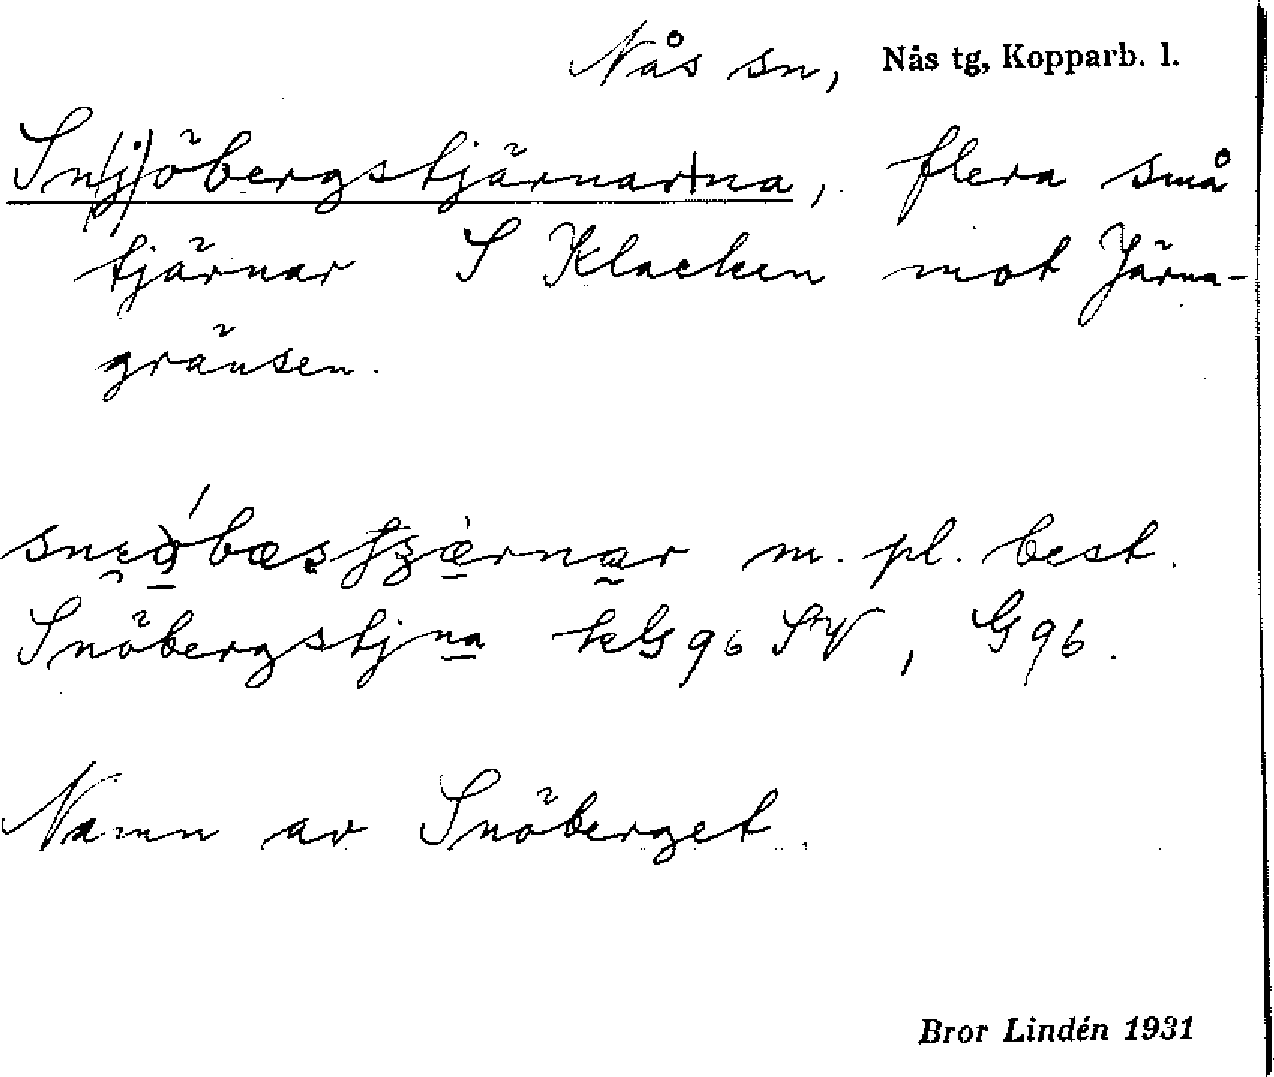 Nås sn, Nås tg, Kopparb. l.
Sn(j)öbergstjärnar+na, flera små
tjärnar S Klacken mot Järna-
gränsen.
m. pl. best.
Snöbergstjna kG96 SV, G96.
Namn av Snöberget.
Bror Lindén 1931